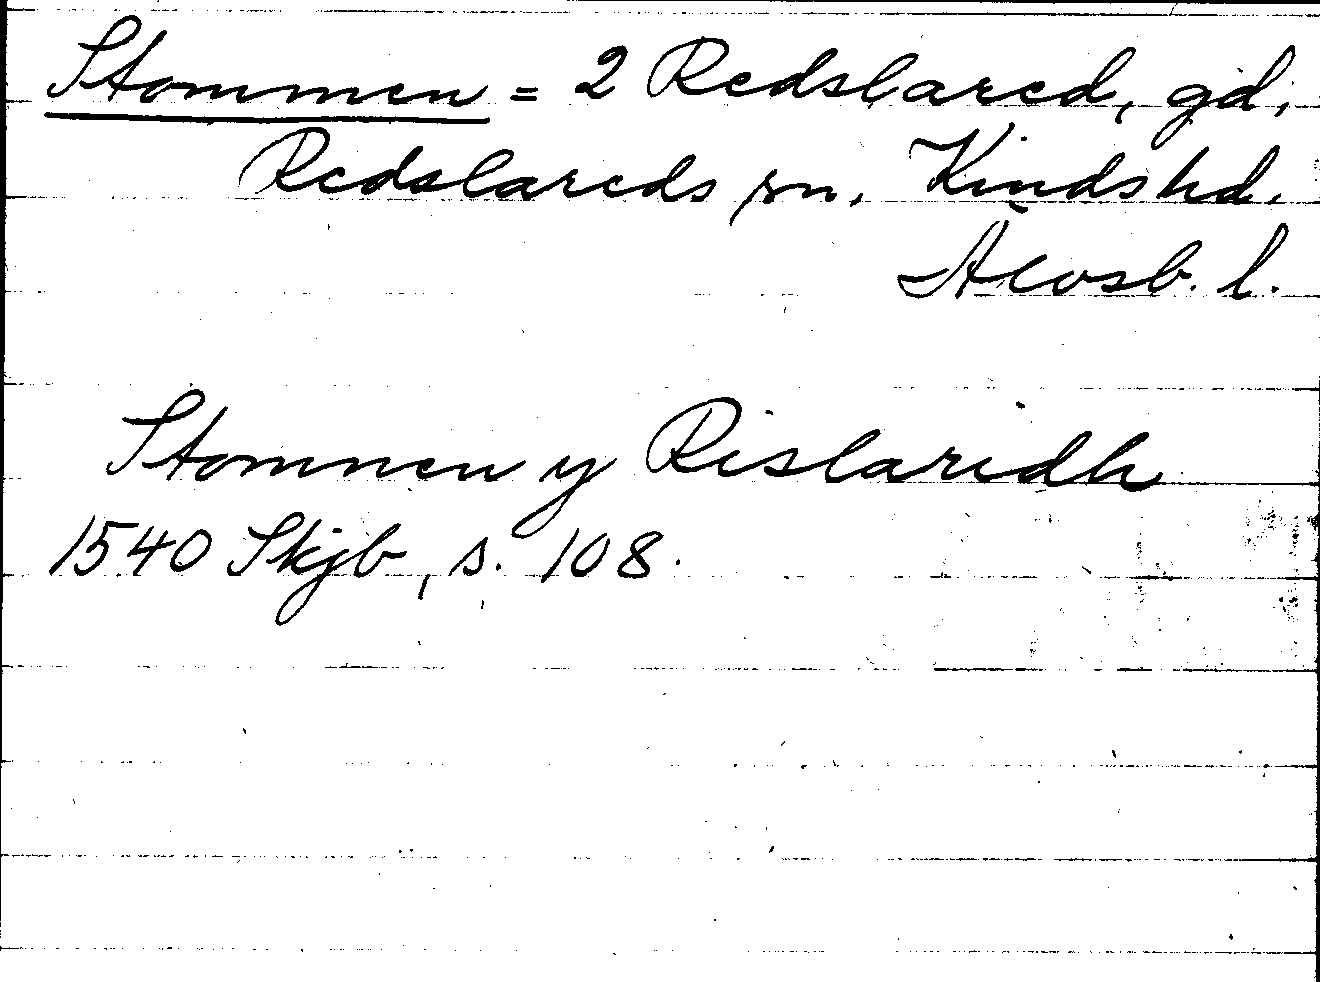 Stommen = 2 Redslared, gd,
Redslareds sn, Kinds hd.
Älvsb. l.
Stomnen y Rislaridh
1540 Skjb, s. 108.